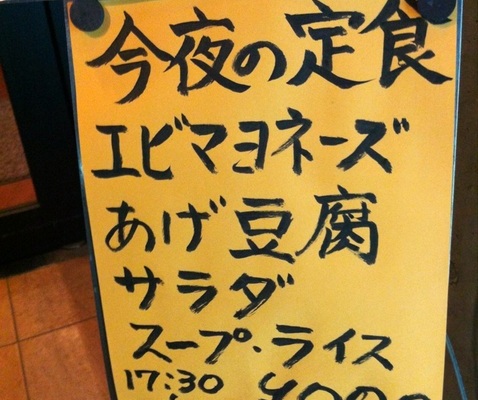 今夜の定食
エビマヨネーズ
あげ豆腐
サラダ
スープ・ライス
17:30